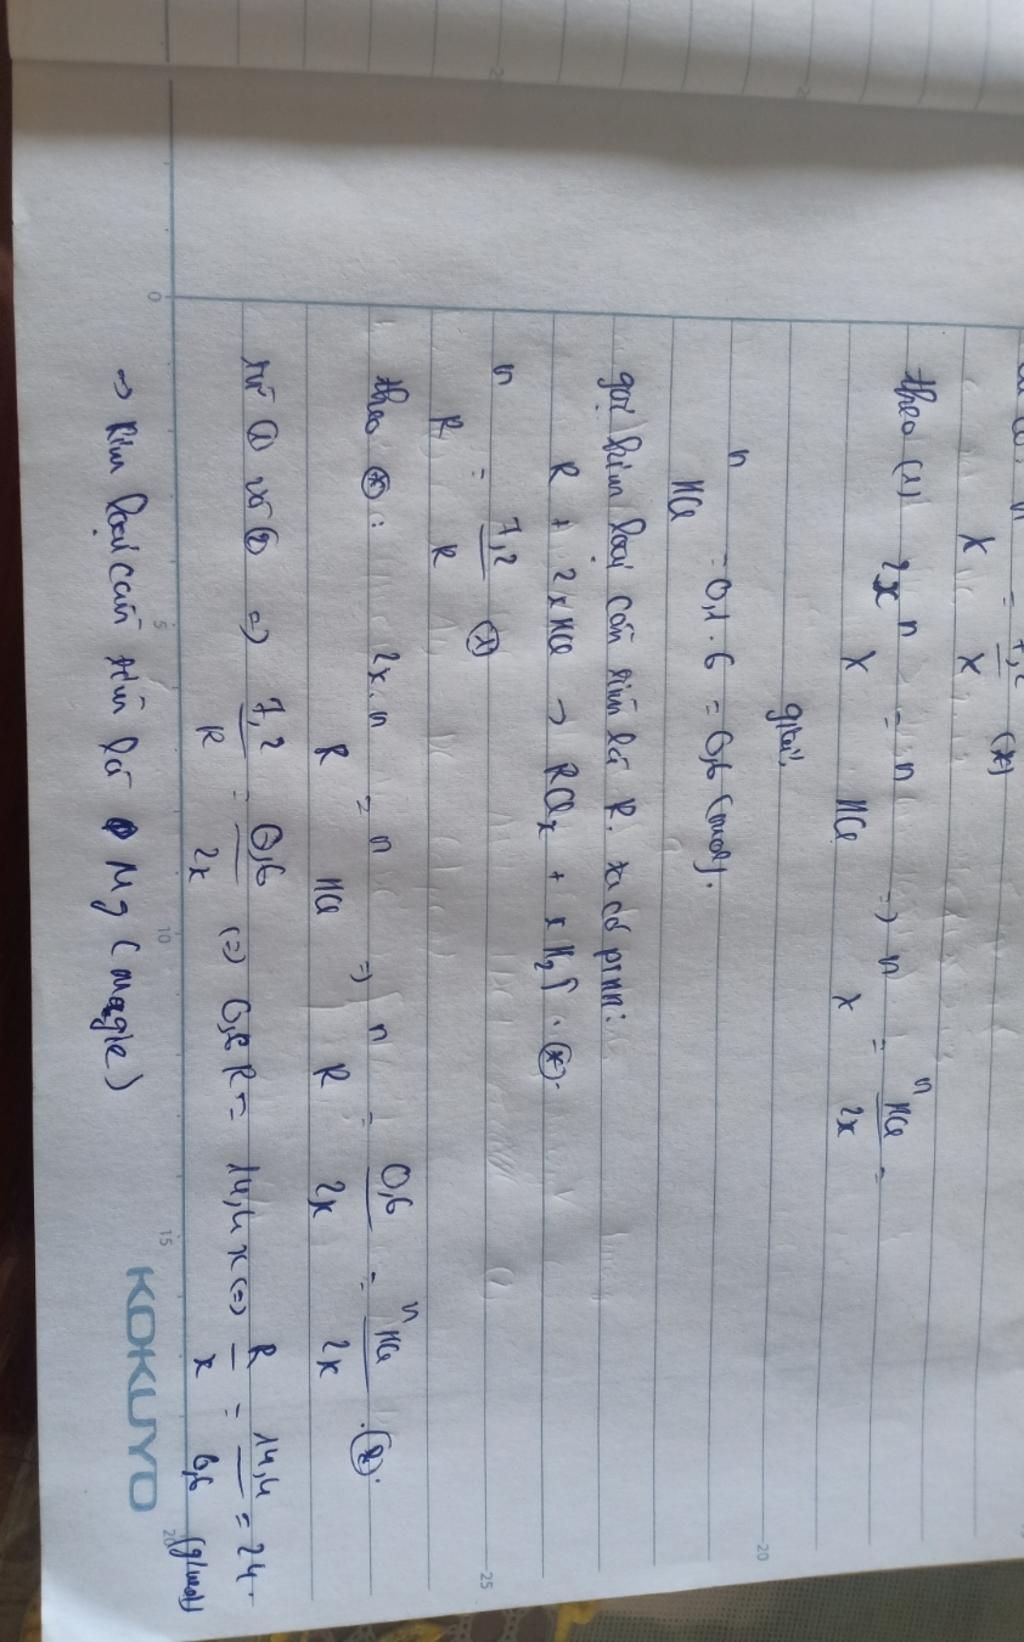 n_X = 7,2/X (*)
theo (1) 2x n_X = n_HCl => n_X = n_HCl/2x =
giải
n_HCl = 0,1 . 6 = 0,6 (mol).
gọi kim loại cần tìm là R. ta có ptpn:
R + 2xHCl -> RClx + xH2↑. (*).
n_R = 7,2/R (1)
theo (*): 2x.n_R = n_HCl => n_R = 0,6/2x = n_HCl/2x . (2).
từ (1) và (2) => 7,2/R = 0,6/2x (=) 0,6R = 14,4x (=) R/x = 14,4/0,6 = 24. (g/mol)
-> kim loại cần tìm là Mg (magie)
0 5 10 15 20
20
25
KOKUYO